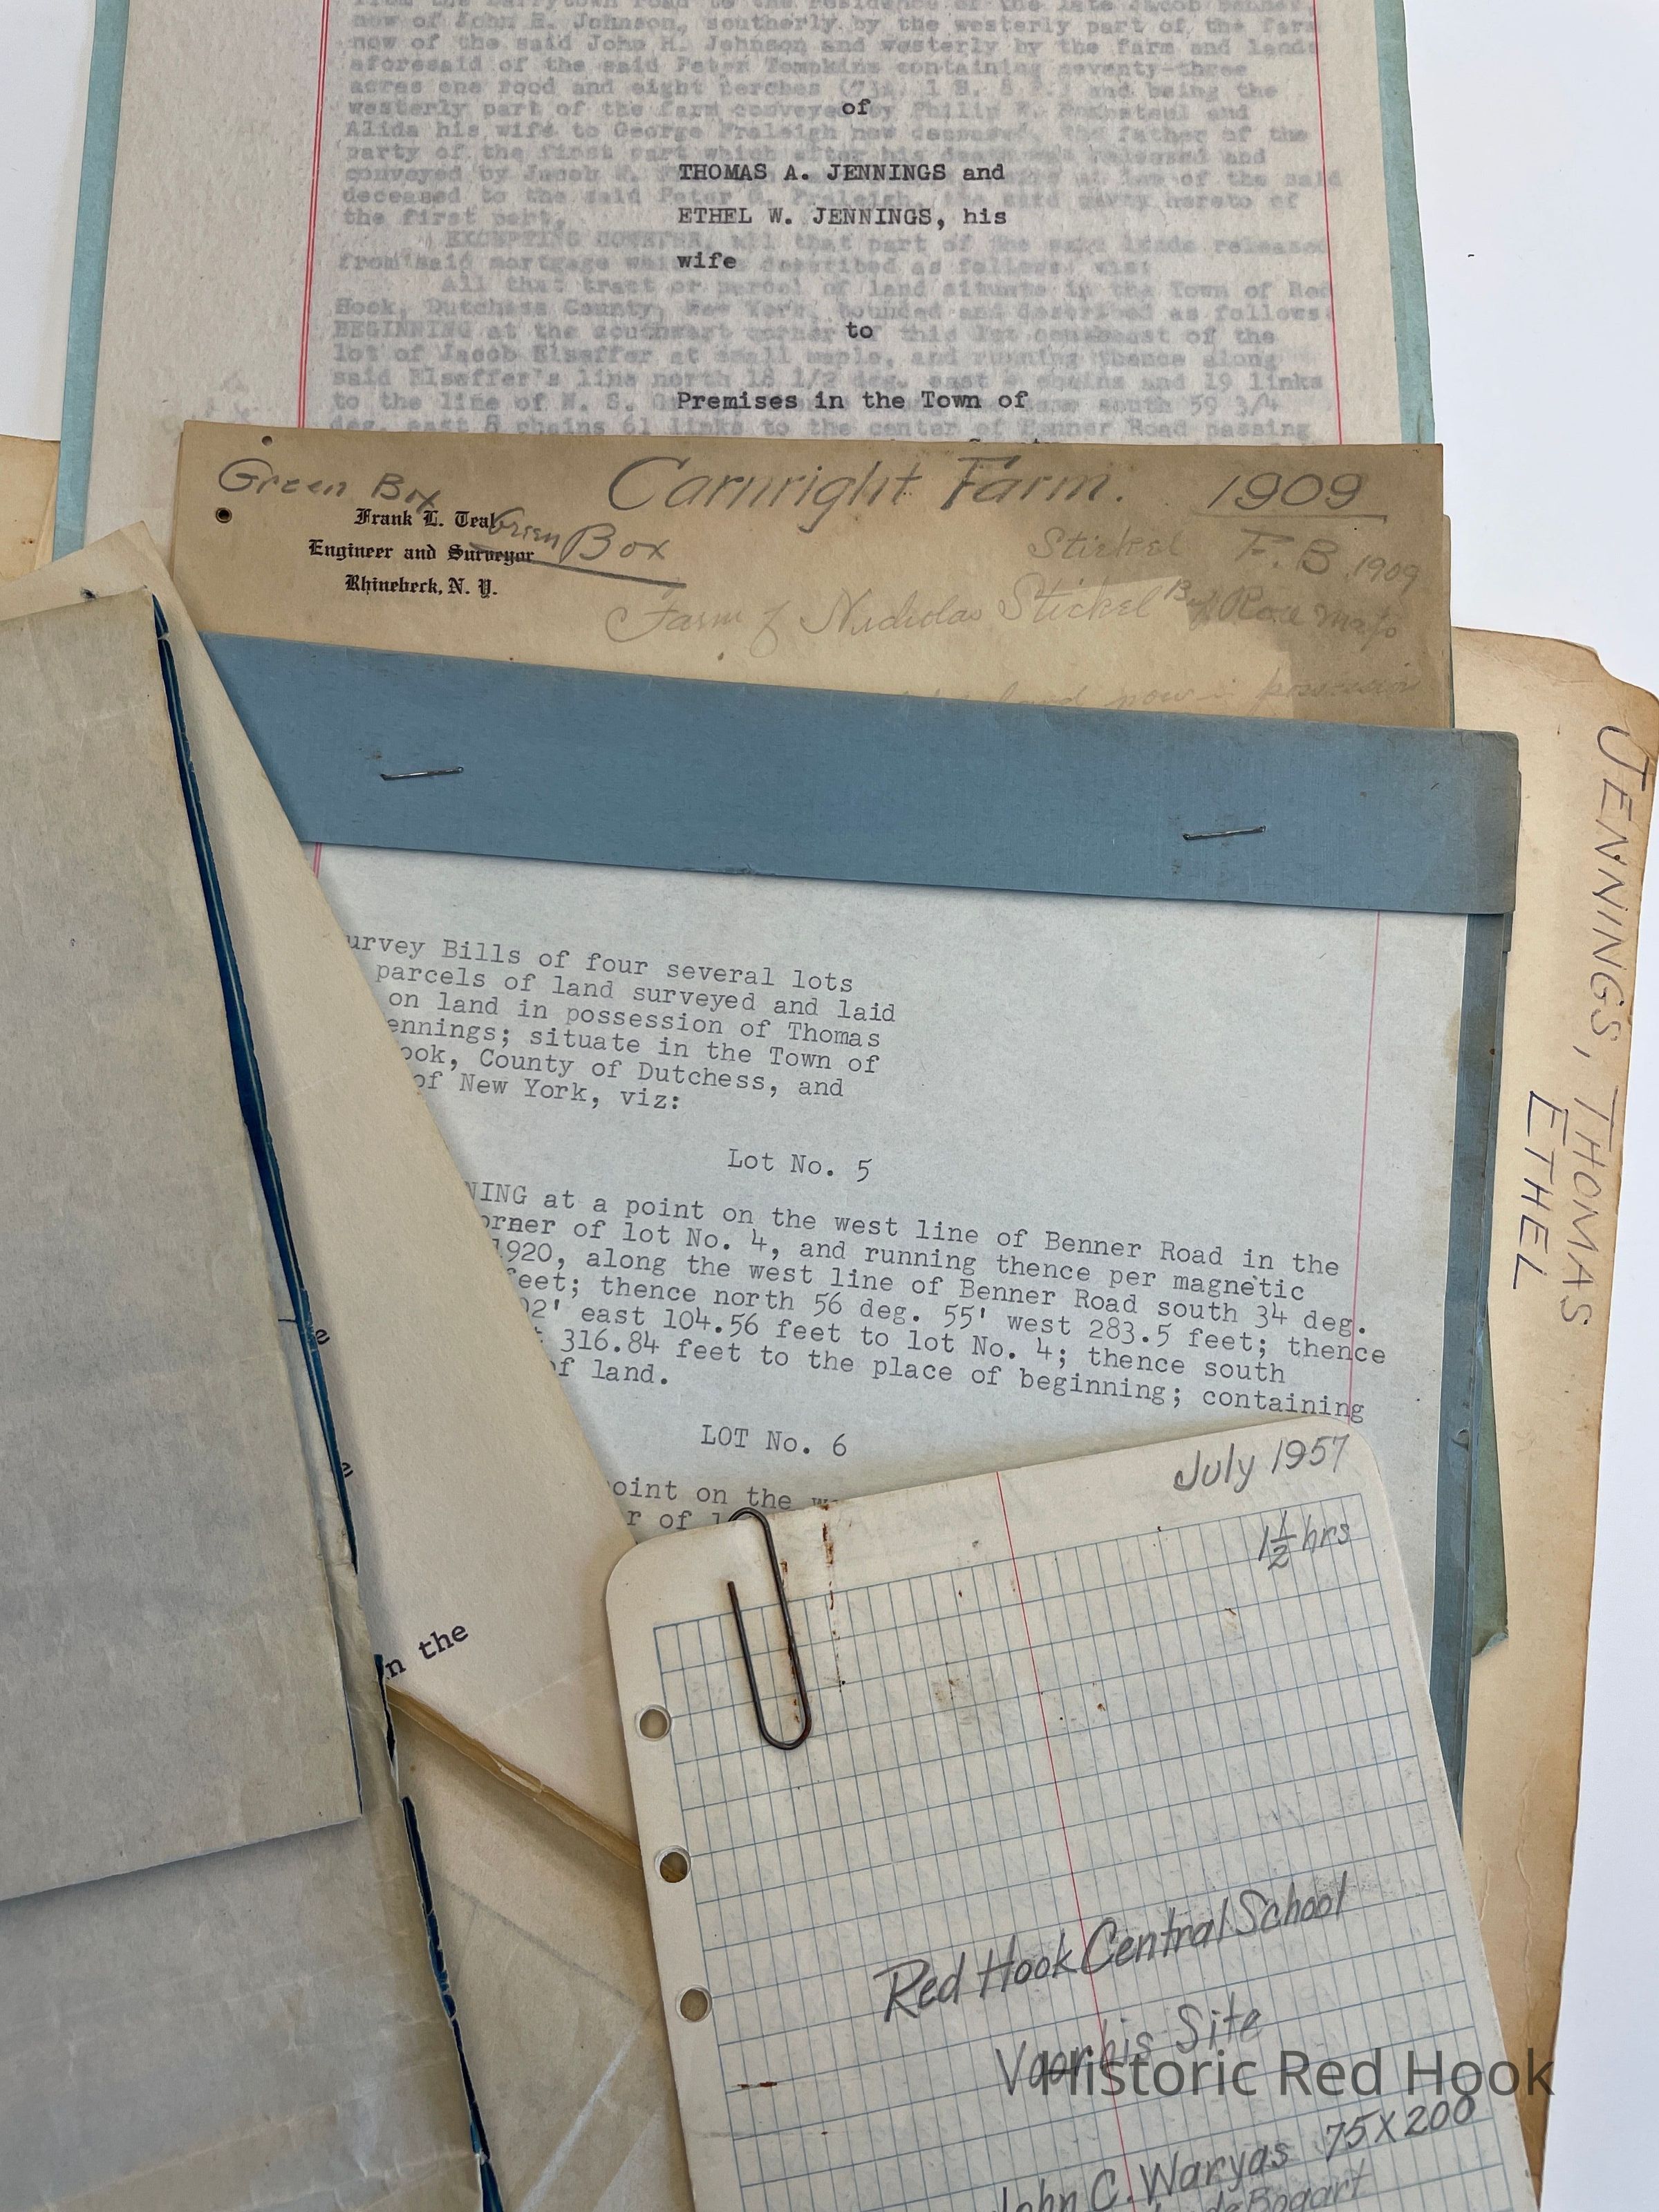 now of John H. Johnson, southerly by the westerly part of the farm
now of the said John H. Johnson and westerly by the farm and lands
aforesaid of the said Peter Tompkins containing seventy-three
acres one rood and eight perches and being the
westerly part of the farm conveyed by Philip and
Alida his wife to George Fraleigh now deceased, the father of the
party of the first part which after his death was released and
conveyed by Jacob of the said
deceased to the said Peter Fraleigh, the said party hereto of
the first part.
EXCEPTING HOWEVER, all that part of the said lands released
from said mortgage which is described as follows, viz:
All that tract or parcel of land situate in the Town of Red
Hook, Dutchess County, New York, bounded and described as follows:
BEGINNING at the southwest corner of this lot southeast of the
lot of Jacob Elseffer at small maple, and running thence along
said Elseffer's line north 18 1/2 deg. east chains and 19 links
to the line of N. S. south 59 3/4
deg. east 8 chains 61 links to the center of Benner Road passing
of
THOMAS A. JENNINGS and
ETHEL W. JENNINGS, his
wife
to
Premises in the Town of
Green Box
Carnright Farm. 1909
Frank L. Teal
Green Box
Engineer and Surveyor
Rhinebeck, N. Y.
Stickel F. B. 1909
Farm of Nicholas Stickel
land now in possession
JENNINGS, THOMAS
ETHEL
urvey Bills of four several lots
parcels of land surveyed and laid
on land in possession of Thomas
ennings; situate in the Town of
ook, County of Dutchess, and
of New York, viz:
Lot No. 5
NING at a point on the west line of Benner Road in the
orner of lot No. 4, and running thence per magnetic
1920, along the west line of Benner Road south 34 deg.
feet; thence north 56 deg. 55' west 283.5 feet; thence
02' east 104.56 feet to lot No. 4; thence south
316.84 feet to the place of beginning; containing
of land.
LOT No. 6
oint on the w
r of l
e
e
n the
July 1957
1 1/2 hrs
Red Hook Central School
Voorhis Site
Historic Red Hook
John C. Waryas 75 X 200
de Bogart